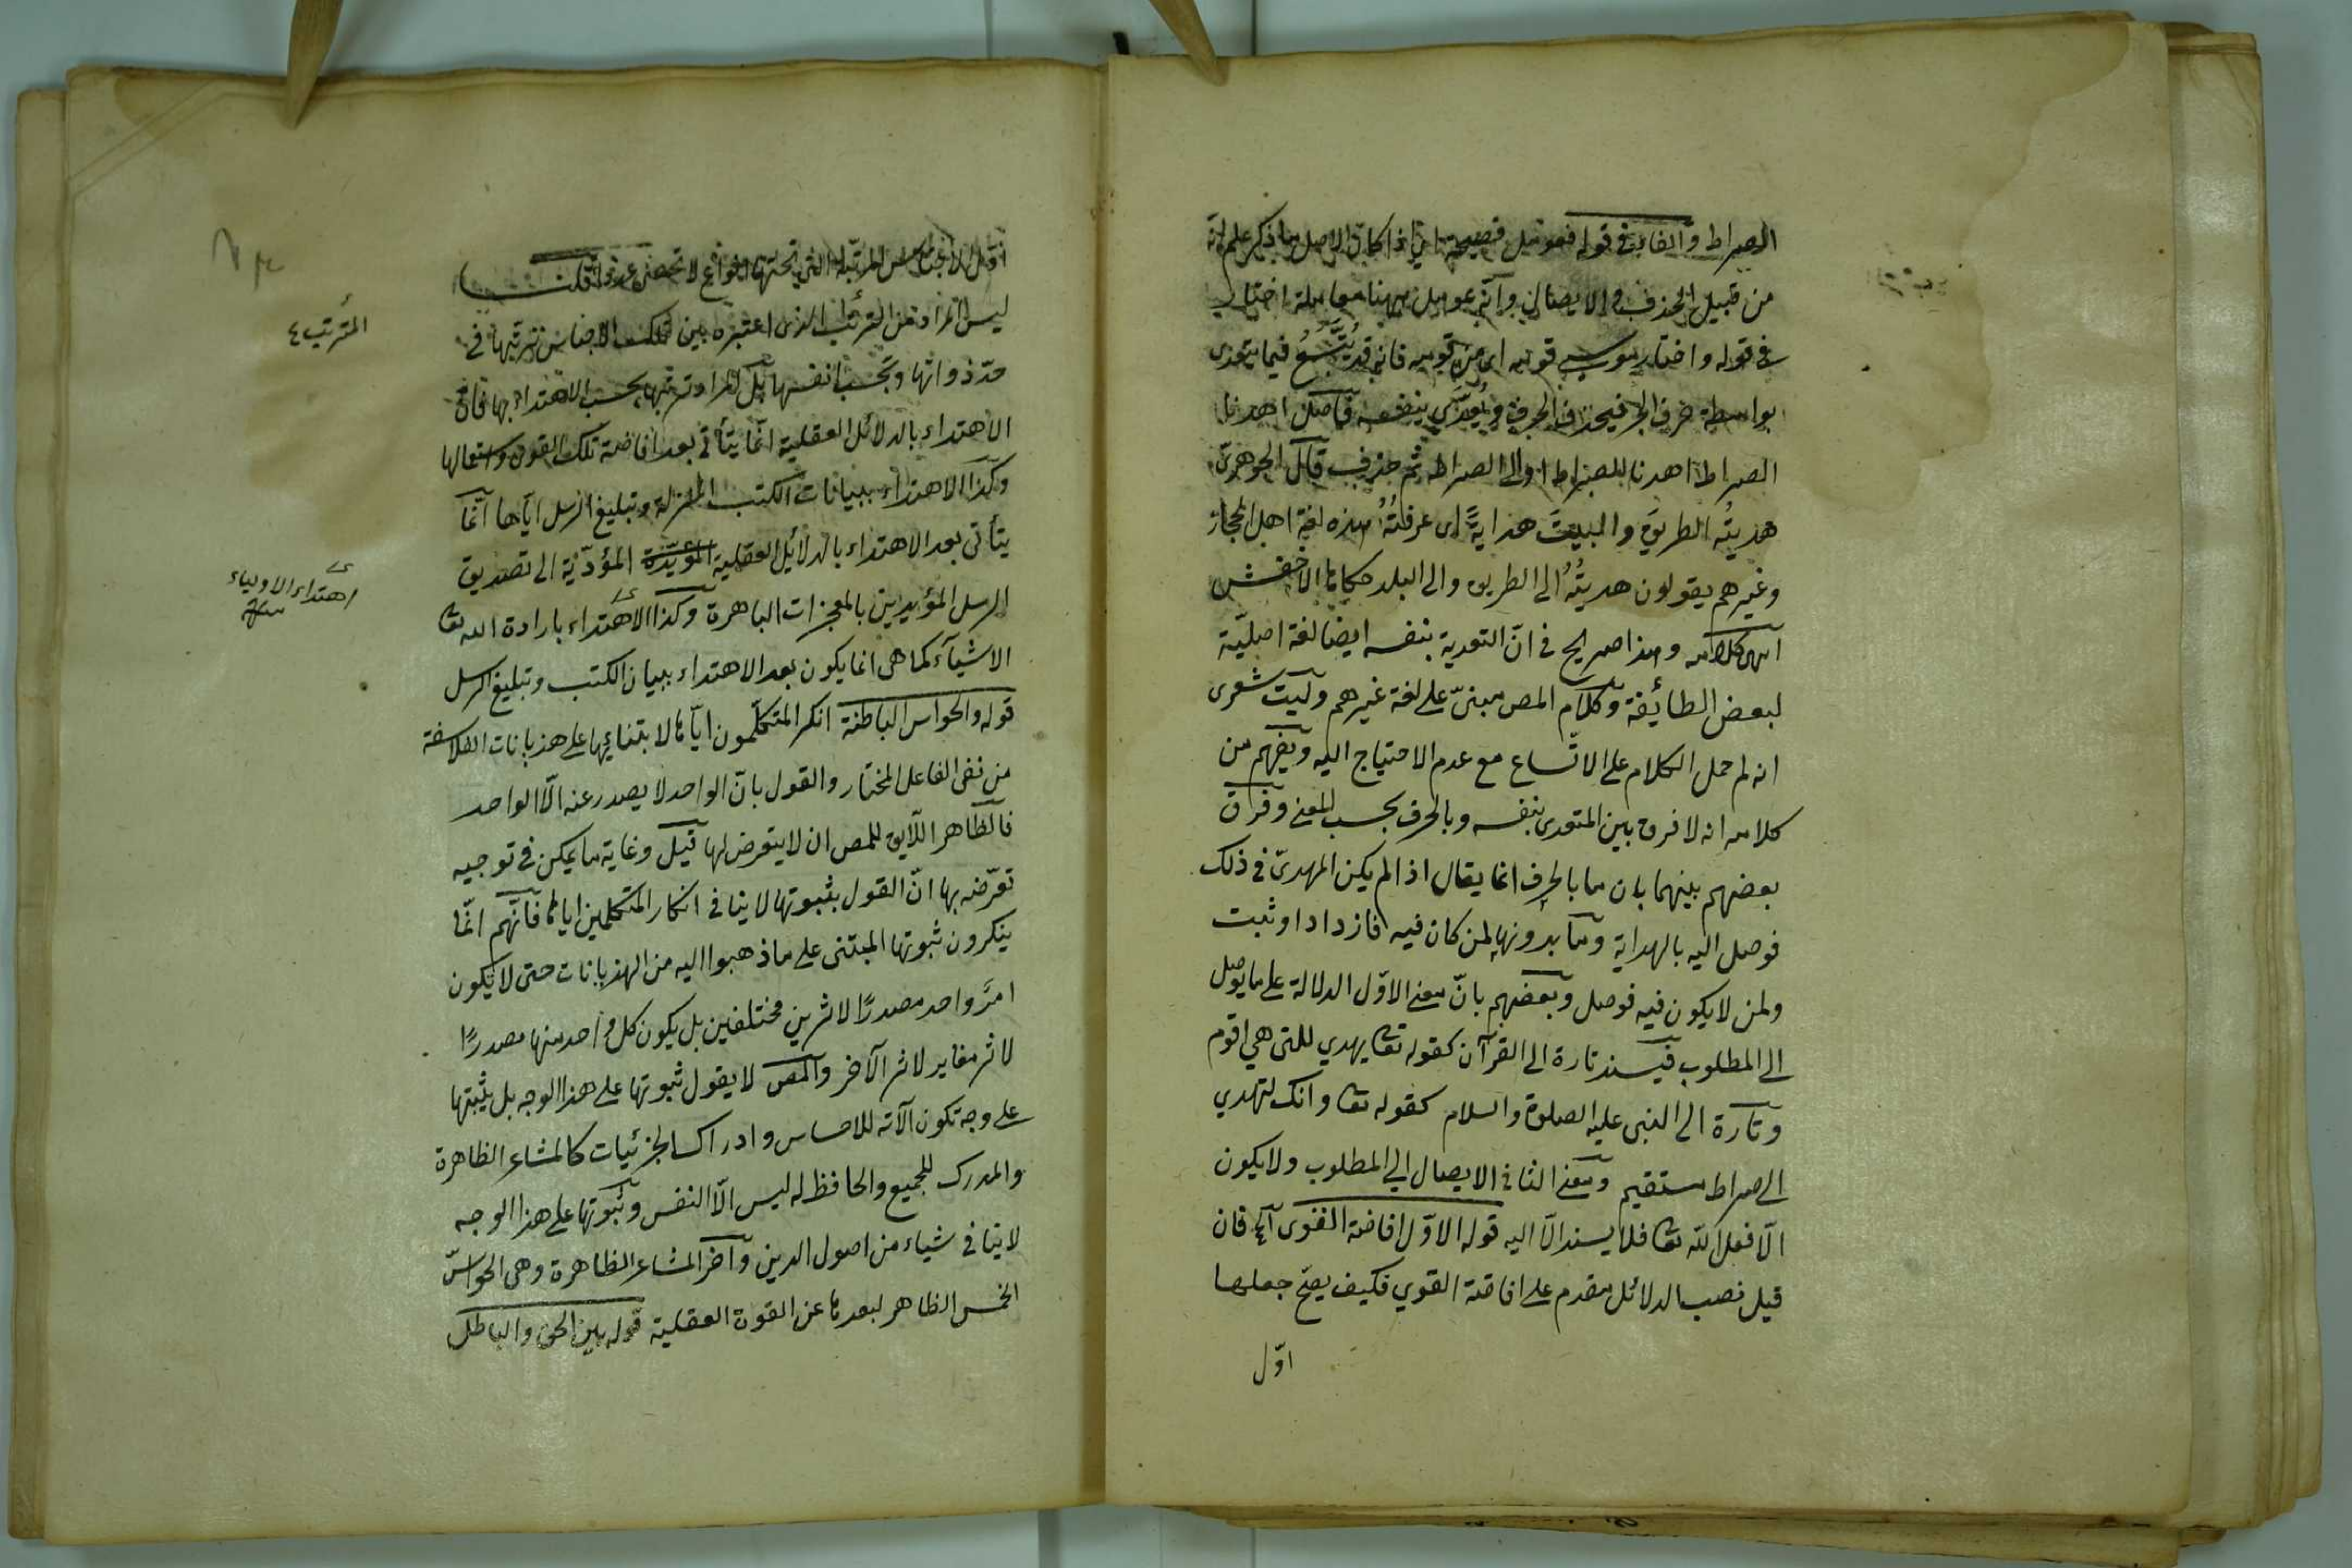 الصراط والفاء في قوله فعومل فصيحة اي اذا كان الاصل ما ذكر علم انه
من قبيل الحذف والايصال وانه عومل ههنا معاملة اختار
في قوله واختار موسى قومه اى من قومه فانه قد يُتَّسَعُ فيما يتعدى
بواسطة حرف الجر فيحذف الحرف ويُعدّى بنفسه فاصل اهدنا
الصراط اهدنا للصراط او الى الصراط ثم حذف قال الجوهرى
هديتُه الطريقَ والبيتَ هدايةً اى عرفتُهُ هذه لغة اهل الحجاز
وغيرهم يقولون هديتُهُ الى الطريق والى البلد حكاها الاخفش
انتهى كلامه وهذا صريح في انّ التعدية بنفسه ايضا لغة اصليّة
لبعض الطائفة وكلام المص مبنىّ على لغة غيرهم وليت شعرى
انه لم حمل الكلام على الاتّساع مع عدم الاحتياج اليه ويفهم من
كلامه انه لا فرق بين المتعدى بنفسه وبالحرف بحسب المعنى وفرّق
بعضهم بينهما بان ما بالحرف انما يقال اذا لم يكن المهدىّ في ذلك
فوصل اليه بالهداية وما بدونها لمن كان فيه فازداد او ثبت
ولمن لا يكون فيه فوصل وبعضهم بانّ معنى الاوّل الدلالة على ما يوصل
الى المطلوب فيسند تارة الى القرآن كقوله تعا يهدي للتى هي اقوم
وتارة الى النبى عليه الصلوة والسلام كقوله تعا وانك لتهدي
الى صراط مستقيم ومعنى الثانى الايصال الى المطلوب ولا يكون
الّا فعل اللّه تعا فلا يسند الّا اليه قوله الاوّل افاضة القوى آه فان
قيل نصب الدلائل مقدم على افاضة القوي فكيف يصحّ جعلها
اوّل
اوّل الاجناس المرتّبة التى تحتها انواع لا تحصى عدّها قلت
ليس المراد من الترتّب الذى اعتبره بين تلك الاجناس ترتّبها في
حدّ ذواتها وبحسب انفسها بل المراد ترتّبها بحسب الاهتداء بها فانّ
الاهتداء بالدلائل العقلية انّما يتأتى بعد افاضة تلك القوى واستعمالها
وكذا الاهتداء ببيانات الكتب المنزلة وتبليغ الرسل اياها انّما
يتأتى بعد الاهتداء بالدلائل العقلية المؤيّدة المؤدّية الى تصديق
الرسل المؤيدين بالمعجزات الباهرة وكذا الاهتداء بارادة الله تعا
الاشيآء كما هى انما يكون بعد الاهتداء ببيان الكتب وتبليغ الرسل
قوله والحواس الباطنة انكر المتكلّمون ايّاها لابتنائها على هذيانات الفلاسفة
من نفى الفاعل المختار والقول بانّ الواحد لا يصدر عنه الّا الواحد
فالظاهر اللّايق للمص ان لا يتعرض لها قيل وغاية ما يمكن في توجيه
تعرّضه بها انّ القول بثبوتها لا ينافى انكار المتكلمين اياها فانّهم انّما
ينكرون ثبوتها المبتنى على ما ذهبوا اليه من الهذيانات حتى لا يكون
امرٌ واحد مصدرًا لاثرين مختلفين بل يكون كل واحد منها مصدرًا
لاثر مغاير لاثر الآخر والمص لا يقول ثبوتها على هذا الوجه بل يثبتها
على وجه تكون الآته للاحساس وادراك الجزئيات كالمشاعر الظاهرة
والمدرك للجميع والحافظ له ليس الّا النفس وثبوتها على هذا الوجه
لا ينافى شياء من اصول الدين وآخر المشاعر الظاهرة وهى الحواسّ
الخمس الظاهر لبعدها عن القوة العقلية قوله بين الحق والباطل
المترتب ٤
اهتداء الاولياء